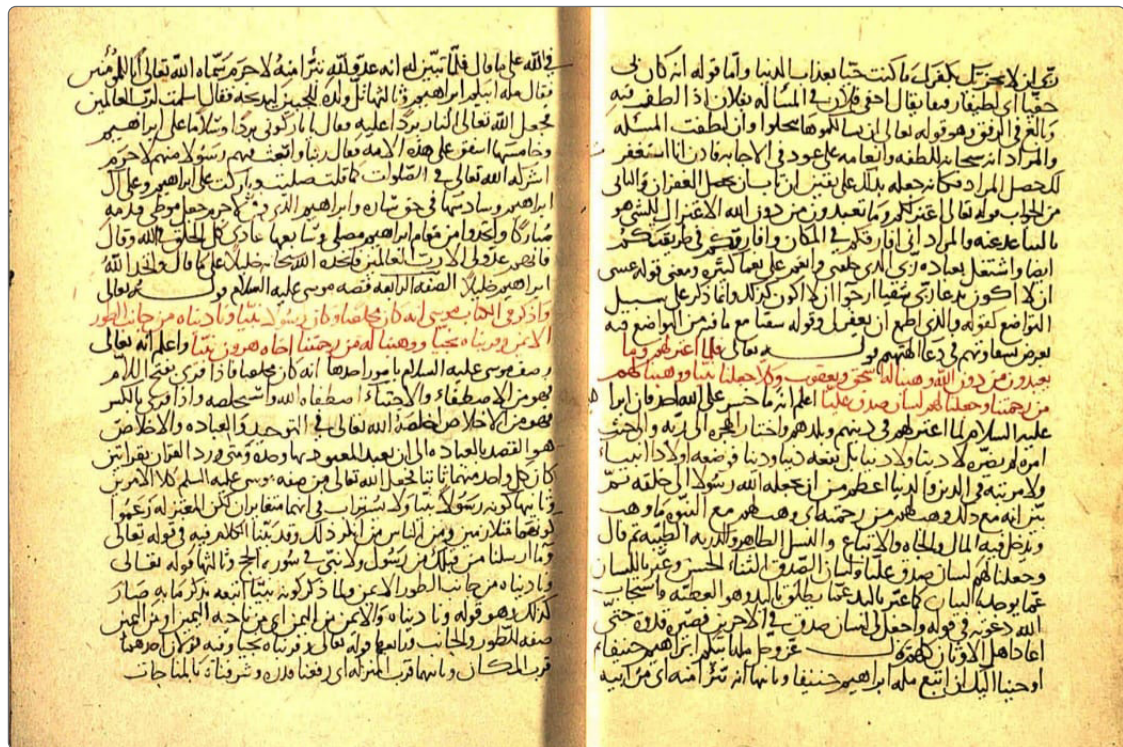 ربي ان لا يحزنك بكفرك ما كنت حيا بعذاب الدنيا واما قوله انه كان بي
حفيا اي لطيفا رفيقا يقال احفى فلان في المسألة بفلان اذا الطف فيه
وبالغ في الرفق وهو قوله تعالى ان يسالكموها تبخلوا وان لطفت المسئله
والمراد انه سبحانه للطفه وانعامه على عود في الاجابه فاذن انا استغفر
لك حصل المراد فكانه جعله بذلك على يقين ان تاب ان يحصل الغفران والثاني
من الجواب قوله تعالى اعتزلكم وما تعبدون من دون الله الاعتزال للشي هو
التباعد عنه والمراد اني افارقكم في المكان وافارقكم في طريقتكم
ايضا واشتغل بعباده ربي الذي خلقني وانعم علي نعما كثيره ومعنى قوله عسى
ان لا اكون بدعا ربي شقيا ارجوا ان لا اكون كذلك وانما ذكر على سبيل
التواضع كقوله والذي اطمع ان يغفر لي وقوله شقيا مع ما فيه من التواضع فيه
تعريض بشقاوتهم في دعا الهتهم قوله تعالى فلما اعتزلهم وما
يعبدون من دون الله وهبنا له اسحق ويعقوب وكلا جعلنا نبيا ووهبنا لهم
من رحمتنا وجعلنا لهم لسان صدق عليا اعلم انه ما خسر على الله احد فان ابرا
عليه السلام لما اعتزلهم في دينهم وبلدهم واختار الهجره الى ربه والى حيث
امره لم يضره لا دينا ولا دنيا بل نفعه دينا ودنيا فوضعه اولادا انبياء
ولا مرتبة في الدين والدنيا اعظم من ان يجعله الله رسولا الى خلقه ثم
بين انه مع ذلك وهب لهم من رحمته اي وهب لهم مع النبوه ما وهب
ويدخل فيه المال والجاه والاتباع والنسل الطاهر والذرية الطيبه ثم قال
وجعلنا لهم لسان صدق عليا ولسان الصدق الثناء الحسن وعبر باللسان
عما يوجد باللسان كما عبر باليد عما يطلق باليد وهو العطيه واستجاب
الله دعوته في قوله واجعل لي لسان صدق في الاخرين فصيره قدوة حتى
ادعاه اهل الاديان كلهم قال عز وجل ملة ابيكم ابراهيم حنيفا ثم
اوحينا اليك ان اتبع مله ابراهيم حنيفا وثانيها انه تبرأ منه اي من ابيه
في الله على ما قال فلما تبين له انه عدو لله تبرأ منه لا جرم سماه الله تعالى ابا للمؤمنين
فقال مله ابيكم ابراهيم وثالثها تل ولده للجبين ليذبحه فقال اسلمت لرب العالمين
فجعل الله تعالى النار بردا عليه فقال يا نار كوني بردا وسلاما على ابراهيم
وخامسها اشفق على هذه الامه فقال ربنا وابعث فيهم رسولا منهم لا جرم
اشركه الله تعالى في الصلوات كما قلت صليت وباركت على ابراهيم وعلى آل
ابراهيم وسادسها في حق ساره وابراهيم الذي وفى لا جرم جعل موطئ قدمه
مباركا واتخذوا من مقام ابراهيم مصلى وسابعها عادى كل الخلق في الله وقال
فانهم عدو لي الا رب العالمين فاتخذه الله سبحانه خليلا على ما قال واتخذ الله
ابراهيم خليلا الصفه الرابعه قصه موسى عليه السلام قوله تعالى
واذكر في الكتاب موسى انه كان مخلصا وكان رسولا نبيا وناديناه من جانب الطور
الايمن وقربناه نجيا ووهبنا له من رحمتنا اخاه هرون نبيا واعلم انه تعالى
وصف موسى عليه السلام بامور احدها انه كان مخلصا فاذا قرئ بفتح اللام
فهو من الاصطفاء والاجتباء اصطفاه الله واستخلصه واذا قرئ بالكسر
فهو من الاخلاص اخلص لله تعالى في التوحيد والعباده والاخلاص
هو القصد بالعباده الى ان يعبد المعبود بها وحده ومتى ورد القرآن بقراتين
كان كل واحد منهما ثابتا فجعل الله تعالى من صفه موسى عليه السلم كلا الامرين
وثانيها كونه رسولا نبيا ولا يستراب في انهما متغايران لكن المعتزله زعموا
كونهما متلازمين ومن الناس من انكر ذلك وقد بينا الكلام فيه في قوله تعالى
وما ارسلنا من قبلك من رسول ولا نبي في سورة الحج وثالثها قوله تعالى
وناديناه من جانب الطور الايمن ولما ذكر كونه نبيا اتبعه بذكر ما به صار
كذلك وهو قوله وناديناه والايمن من اليمن اي من ناحية اليمين او من اليمن
صفه للطور وللجانب ورابعها قوله تعالى وقربناه نجيا وفيه قولان احدهما
قرب المكان وثانيهما قرب المنزله اي رفعنا قدره وشرفناه بالمناجات